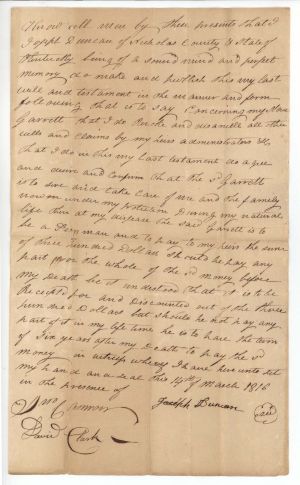 Know all men by these presents that I
Joseph Duncan of Nicholas County & State of
Kentucky being of a sound mind and perfect
memory do make and publish this my last
will and testament in the manner and form
following that is to say Concerning my Slave
Garrett that I do Revoke and disannull all other
wills and Claims by my heirs administrators &c
that I do in this my Last testament do agree
and desire and Confirm that the sd Garrett
is to live and take Care of me and the family
now on under my During my natural
life then at my decease the Said Garrett is to
be a Freeman and to pay to my heirs the sum
of three hundred Dollars Should he pay any
part or the whole of the sd money before
my Death be it understood that it is to be
the for and Discounted out of the three
hundred Dollars but should he not pay any
part of it in my life time he is to have the term
of Six years after my Death to pay the sd
money in witness whereof I have here unto set
my hand and seal this 14th of March 1816
in the presence of
Joseph Duncan Seal
David Clark